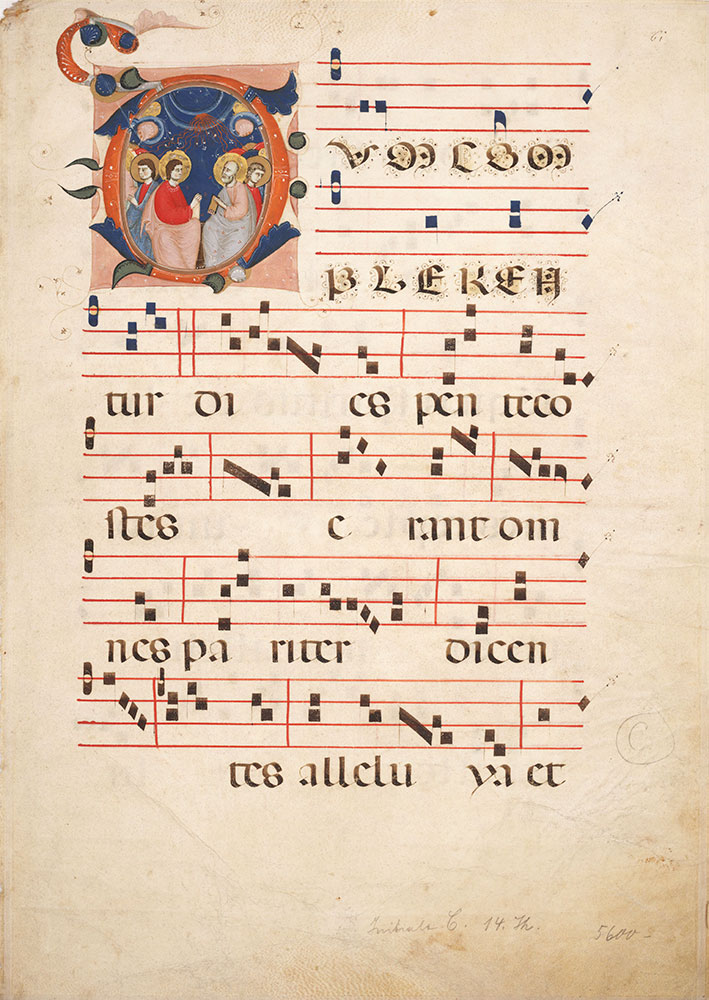 61
CVM COM
PLEREN
tur di es pen teco
stes e rant om
nes pa riter dicen
C
tes allelu ya et
Initiale C. 14. Jh. 5600-